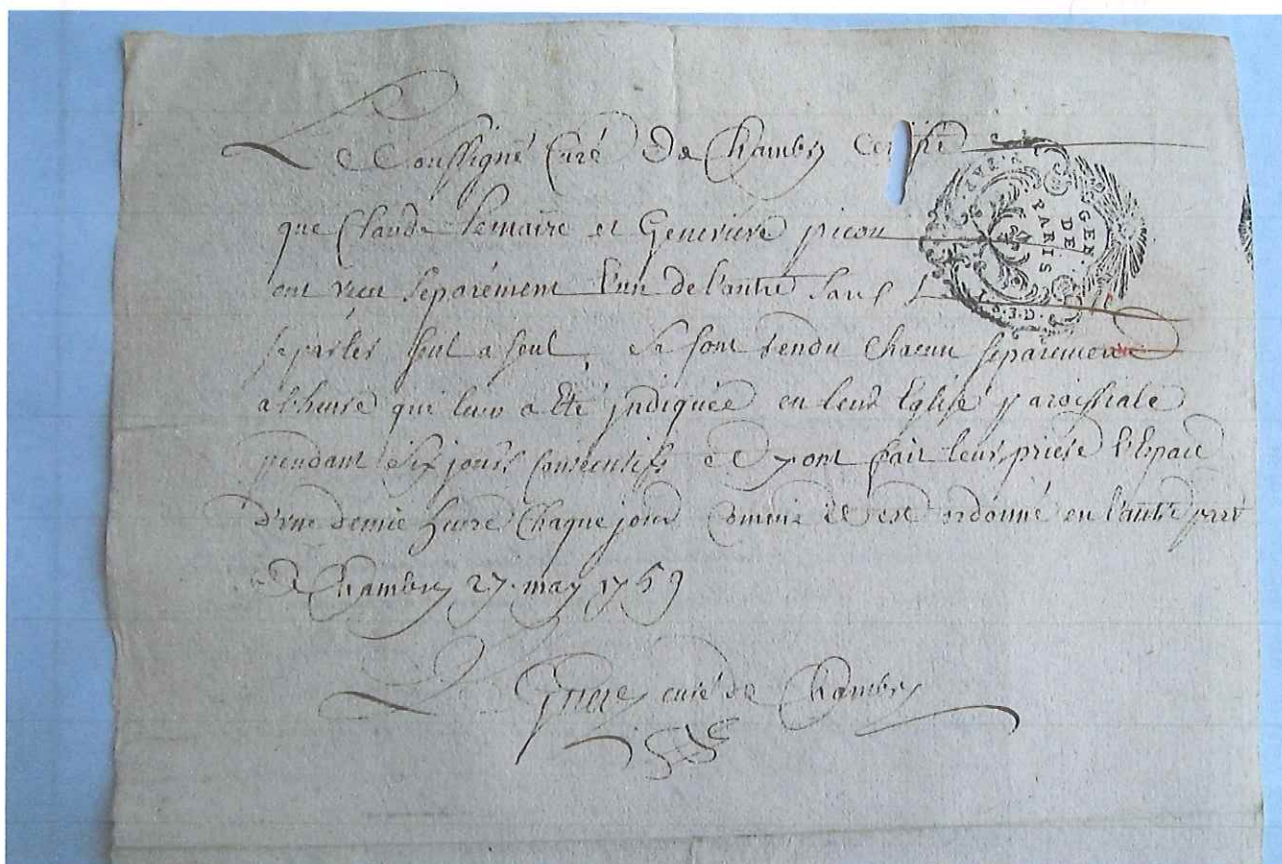 Le Soussigné Curé De Chambry Certifie
que Claude lemaire et Geneviève picou
ont vécu séparément l'un de l'autre sans
se parler seul a seul, se sont rendu chacun séparément
a l'heure qui leur a été indiquée en leur Eglise paroissiale
pendant six jours consécutifs et y ont fait leur prière l'espace
d'une demie heure chaque jour comme il est ordonné en l'autre part
A Chambry 27. may 1759
curé de Chambry
GEN.
DE
PARIS